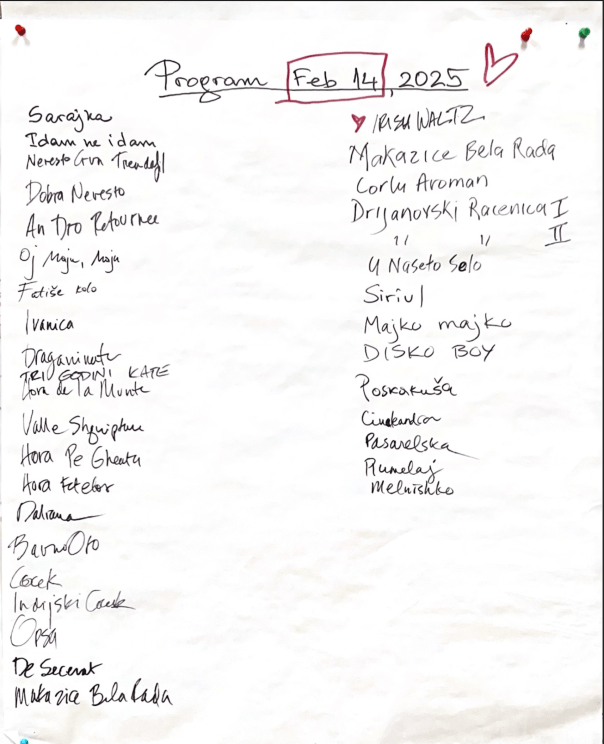 Program Feb 14, 2025
Sarajka
Idam ne idam
Nevesto Crvn Trendafl
Dobra Nevesto
An Dro Retournee
Oj Maju, Maju
Fatiše kolo
Ivanica
Draganinata
TRI GODINI KATE
Hora de la Munte
Valle Shqiptare
Hora Pe Gheata
Hora Fetelor
Daliana
Bavno Oro
Cocek
Indijski Cocek
Opsa
De Secerat
Makazice Bela Rada
IRISH WALTZ
Makazice Bela Rada
Corlu Aroman
Drijanovski Racenica I
" " II
U Naseto Selo
Siriul
Majko majko
DISKO BOY
Poskakuša
Pasarelska
Rumelaj
Melnishko